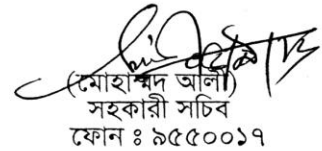 (মোহাম্মদ আলী)
সহকারী সচিব
ফোন ঃ ৯৫৫০০১৭